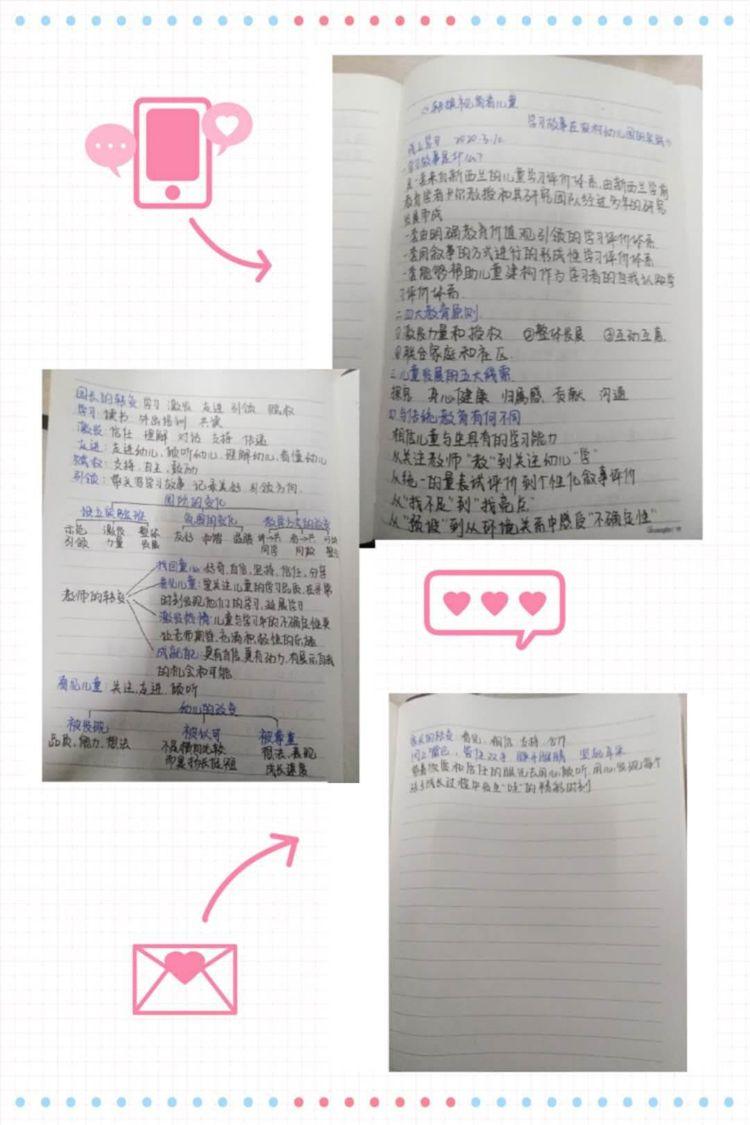 《转换视角看儿童
学习故事在农村幼儿园的实践》
线上学习 2020.3.12
一.学习故事是什么?
是一套来自新西兰的儿童学习评价体系.由新西兰学前
教育学者卡尔教授和其研究团队经过多年的研究
发展形成
一套由明确教育价值观引领的学习评价体系
一套用叙事的方式进行的形成性学习评价体系
一套能够帮助儿童建构作为学习者的自我认知学
习评价体系.
二.四大教育原则.
①激发力量和授权 ②整体发展 ③互动互惠
④联合家庭和社区.
三.儿童发展的五大线索.
探究 身心健康 归属感 贡献 沟通
四.与传统教育有何不同
相信儿童与生具有的学习能力
从关注教师"教"到关注幼儿"学"
从统一的量表试评价到个性化叙事评价
从"找不足"到"找亮点"
从"预设"到从环境关系中感受"不确定性"
园长的转变 学习 激发 走进 引领 赋权
学习:读书 外出培训 共读
激发:信任 理解 对话 支持 传递
走进:走进幼儿,倾听幼儿,理解幼儿,看懂幼儿
赋权:支持.自主.鼓励
引领:带头写学习故事 记录美好 引领方向.
团队的变化
设立实验班 氛围的变化
示范 激发 整体 友好 和谐 温暖
引领 力量 发展
教师的转变
找回童心:好奇,自信,坚持,信任,分享
看见儿童:里关注儿童的学习品质,在平常
的时刻发现他们的学习,延展学习
激发热情:儿童与学习中的不确定性更
让老师期待,充满积极性的乐趣
成就自己:更有自信,更有动力,有展示自我
的机会和可能
看见儿童:关注,走进,倾听
幼儿的改变
被发现 被认可 被尊重
品质,能力,想法 不是横向比较 想法、表现
而是扬长促短 成长速度
家长的转变 看见 相信 支持 合作
闭上嘴巴,管住双手 睁开眼睛 竖起耳朵
带着欣赏和信任的眼光去用心倾听,用心发现每个
孩子成长过程中无比"哇"的精彩时刻